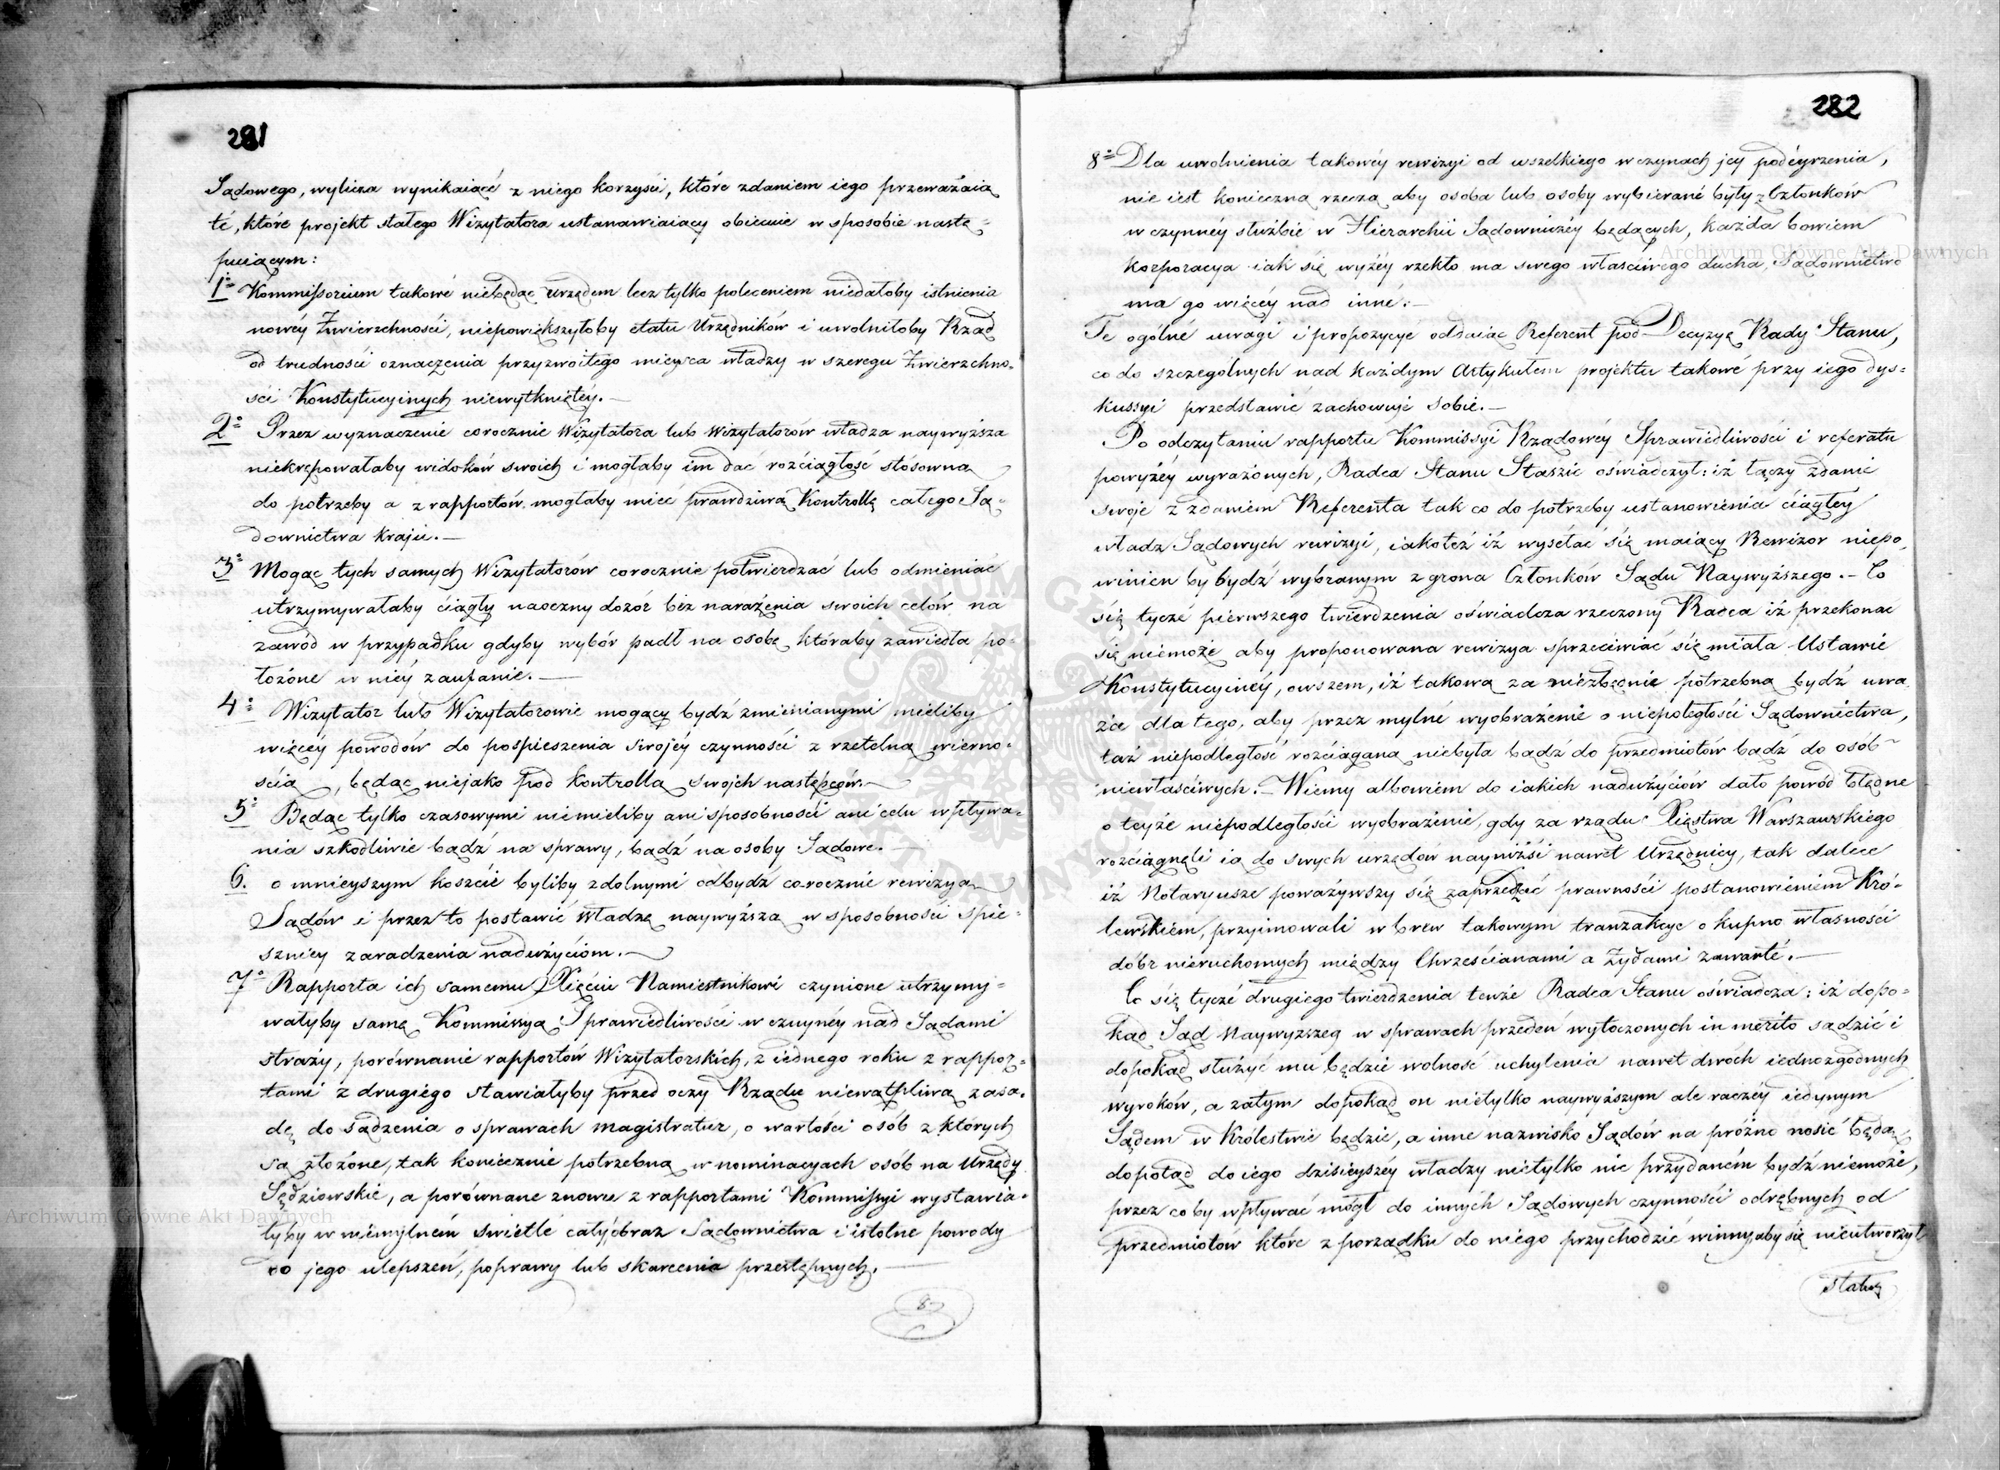 281
Sądowego, wylicza wynikaiącé z niego korzyści, które zdaniem iego przeważaią
té, które projekt stałego Wizytatora ustanawiaiący obiecuie w sposobie nastę-
puiącym:
1° Kommissorium takowé niebędąc urzędem lecz tylko poleceniem niedałoby istnienia
nowéy Zwierzchności, niepowiększyłoby etatu Urzędników i uwolniłoby Rząd
od trudności oznaczenia przyzwoitego mieysca władzy w szeregu Zwierzchno-
ści Konstytucyinych niewytkniętéy.—
2° Przez wyznaczenie corocznie Wizytatora lub Wizytatorów władza naywyższa
niekrępowałaby widoków swoich i mogłaby im dać rozciągłość stósowną
do potrzeby a z rapportów mogłaby miec prawdziwą Kontrollę całego Są-
downictwa kraju.—
3° Mogąc tych samych Wizytatorów corocznie potwierdzać lub odmieniać
utrzymywałaby ciągły naoczny dozór bez narażenia swoich celów na
zawód w przypadku gdyby wybór padł na osobę któraby zawiodła po-
łożone w niéy zaufanie.—
4° Wizytator lub Wizytatorowie mogący bydź zmienianymi mieliby
więcéy powodów do pospieszenia swojéy czynności z rzetelną wierno-
ścią, będąc niejako pod kontrollą swojch następców.—
5° Będąc tylko czasowymi niemieliby ani sposobności ani celu wpływa-
nia szkodliwie bądź na sprawy, bądź na osoby Sądowe.—
6. o mnieyszym koszcie byliby zdolnymi odbydź corocznie rewizyą
Sądów i przez to postawić władzę naywyższą w sposobności spie-
szniey zaradzenia nadużyciom.—
7° Rapporta ich samemu Xięciu Namiestnikowi czynione utrzymy-
wałyby samę Kommissyą Sprawiedliwości w czuynéy nad Sądami
straży, porównanie rapportów Wizytatorskich, z iednego roku z rappor-
tami z drugiego stawiałyby przed oczy Rządu niewątpliwą zasa-
dę do sądzenia o sprawach magistratur, o wartości osób z których
są złożone, tak koniecznie potrzebną w nominacyach osób na Urzędy
Sędziowskie, a porównane znowu z rapportami Kommissyi wystawia-
łyby w niemylnem świetle cały obraz Sądownictwa i istotne powody
do jego ulepszeń, poprawy lub skarcenia przestępnych.—
8°
282
8° Dla uwolnienia takowéy rewizyi od wszelkiego w czynach jey podéyrzenia,
nie iest konieczną rzeczą aby osoba lub osoby wybierané były z Członków
w czynnéy służbie w Hierarchii Sądowniczéy będących, każda bowiem
korporacya iak się wyżéy rzekło ma swego właściwego ducha, Sądownictwo
ma go więcéy nad inné.—
Te ogólne uwagi i propozycye oddaiąc Referent pod Decyzyę Rady Stanu,
co do szczególnych nad każdym Artykułem projektu takowé przy iego dys-
kussyi przedstawić zachowujé sobie.—
Po odczytaniu rapportu Kommissyi Rządowéy Sprawiedliwości i referatu
powyżéy wyrażonych, Radca Stanu Staszic oświadczył: iż łączy zdanie
swoje z zdaniem Referenta tak co do potrzeby ustanowienia ciągłéy
władz Sądowych rewizyi, iakotéż iż wysełać się maiący Rewizor niepo-
winien by bydź wybranym z grona Członków Sądu Naywyższego.— Co
się tyczé pierwszego twierdzenia oświadcza rzeczony Radca iż przekonać
się niemożé aby proponowana rewizya sprzeciwiać się miała Ustawie
Konstytucyinéy, owszem, iż takową za niezbędnie potrzebną bydź uwa-
ża dla tego, aby przez mylné wyobrażenie o niepoległości Sądownictwa,
taż niepodległość rozciągana niebyła bądź do przedmiotów bądź do osób
niewłaściwych.— Wiemy albowiem do iakich nadużyciów dało powód błędne
o teyże niepodległości wyobrażenie, gdy za rządu Xięstwa Warszawskiego
rozciągnęli ią do swych urzędów nayniżsi nawet Urzędnicy, tak dalece
iż Notaryusze poważywszy się zaprzeczać prawności postanowieniem Kró-
lewskiém, przyimowali w brew takowym tranzakcye o kupno własności
dóbr nieruchomych między Chrześcianami a Żydami zawarté.—
Co się tyczé drugiego twierdzenia tenże Radca Stanu oświadcza: iż dopo-
kąd Sąd Naywyższy w sprawach przedeń wytoczonych in merito sądzić i
dopokąd służyć mu będzie wolność uchylenia nawet dwóch iednozgodnych
wyroków, a zatym dopokąd on nietylko naywyższym ale raczéy iedynym
Sądem w Królestwie będzie, a inne nazwisko Sądów na próżno nosić będą,
dopotąd do iego dzisieyszéy władzy nietylko nic przydaném bydź niemoże,
przez co by wpływać mógł do innych Sądowych czynności odrębnych od
przedmiotow które z porządku do niego przychodzić winny aby się nieutworzył
Status